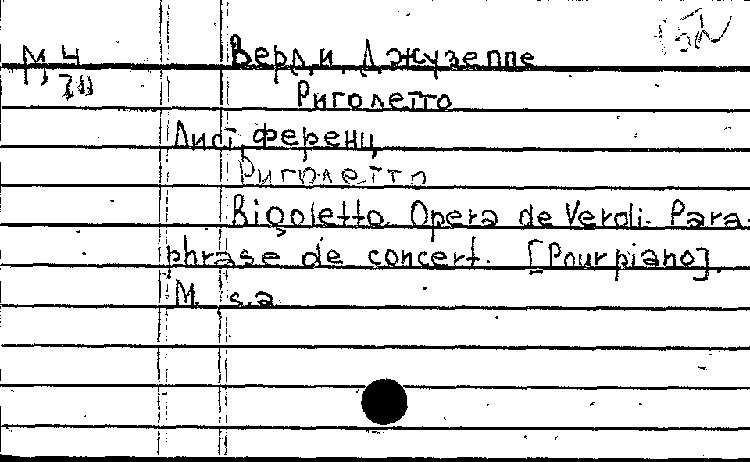 М,4 Верди, Джузеппе
Риголетто
Лист, ференц
Риголетто
Rigoletto. Opera de Verdi. Para-
phrase de concert. [Pour piano].
M. s.a